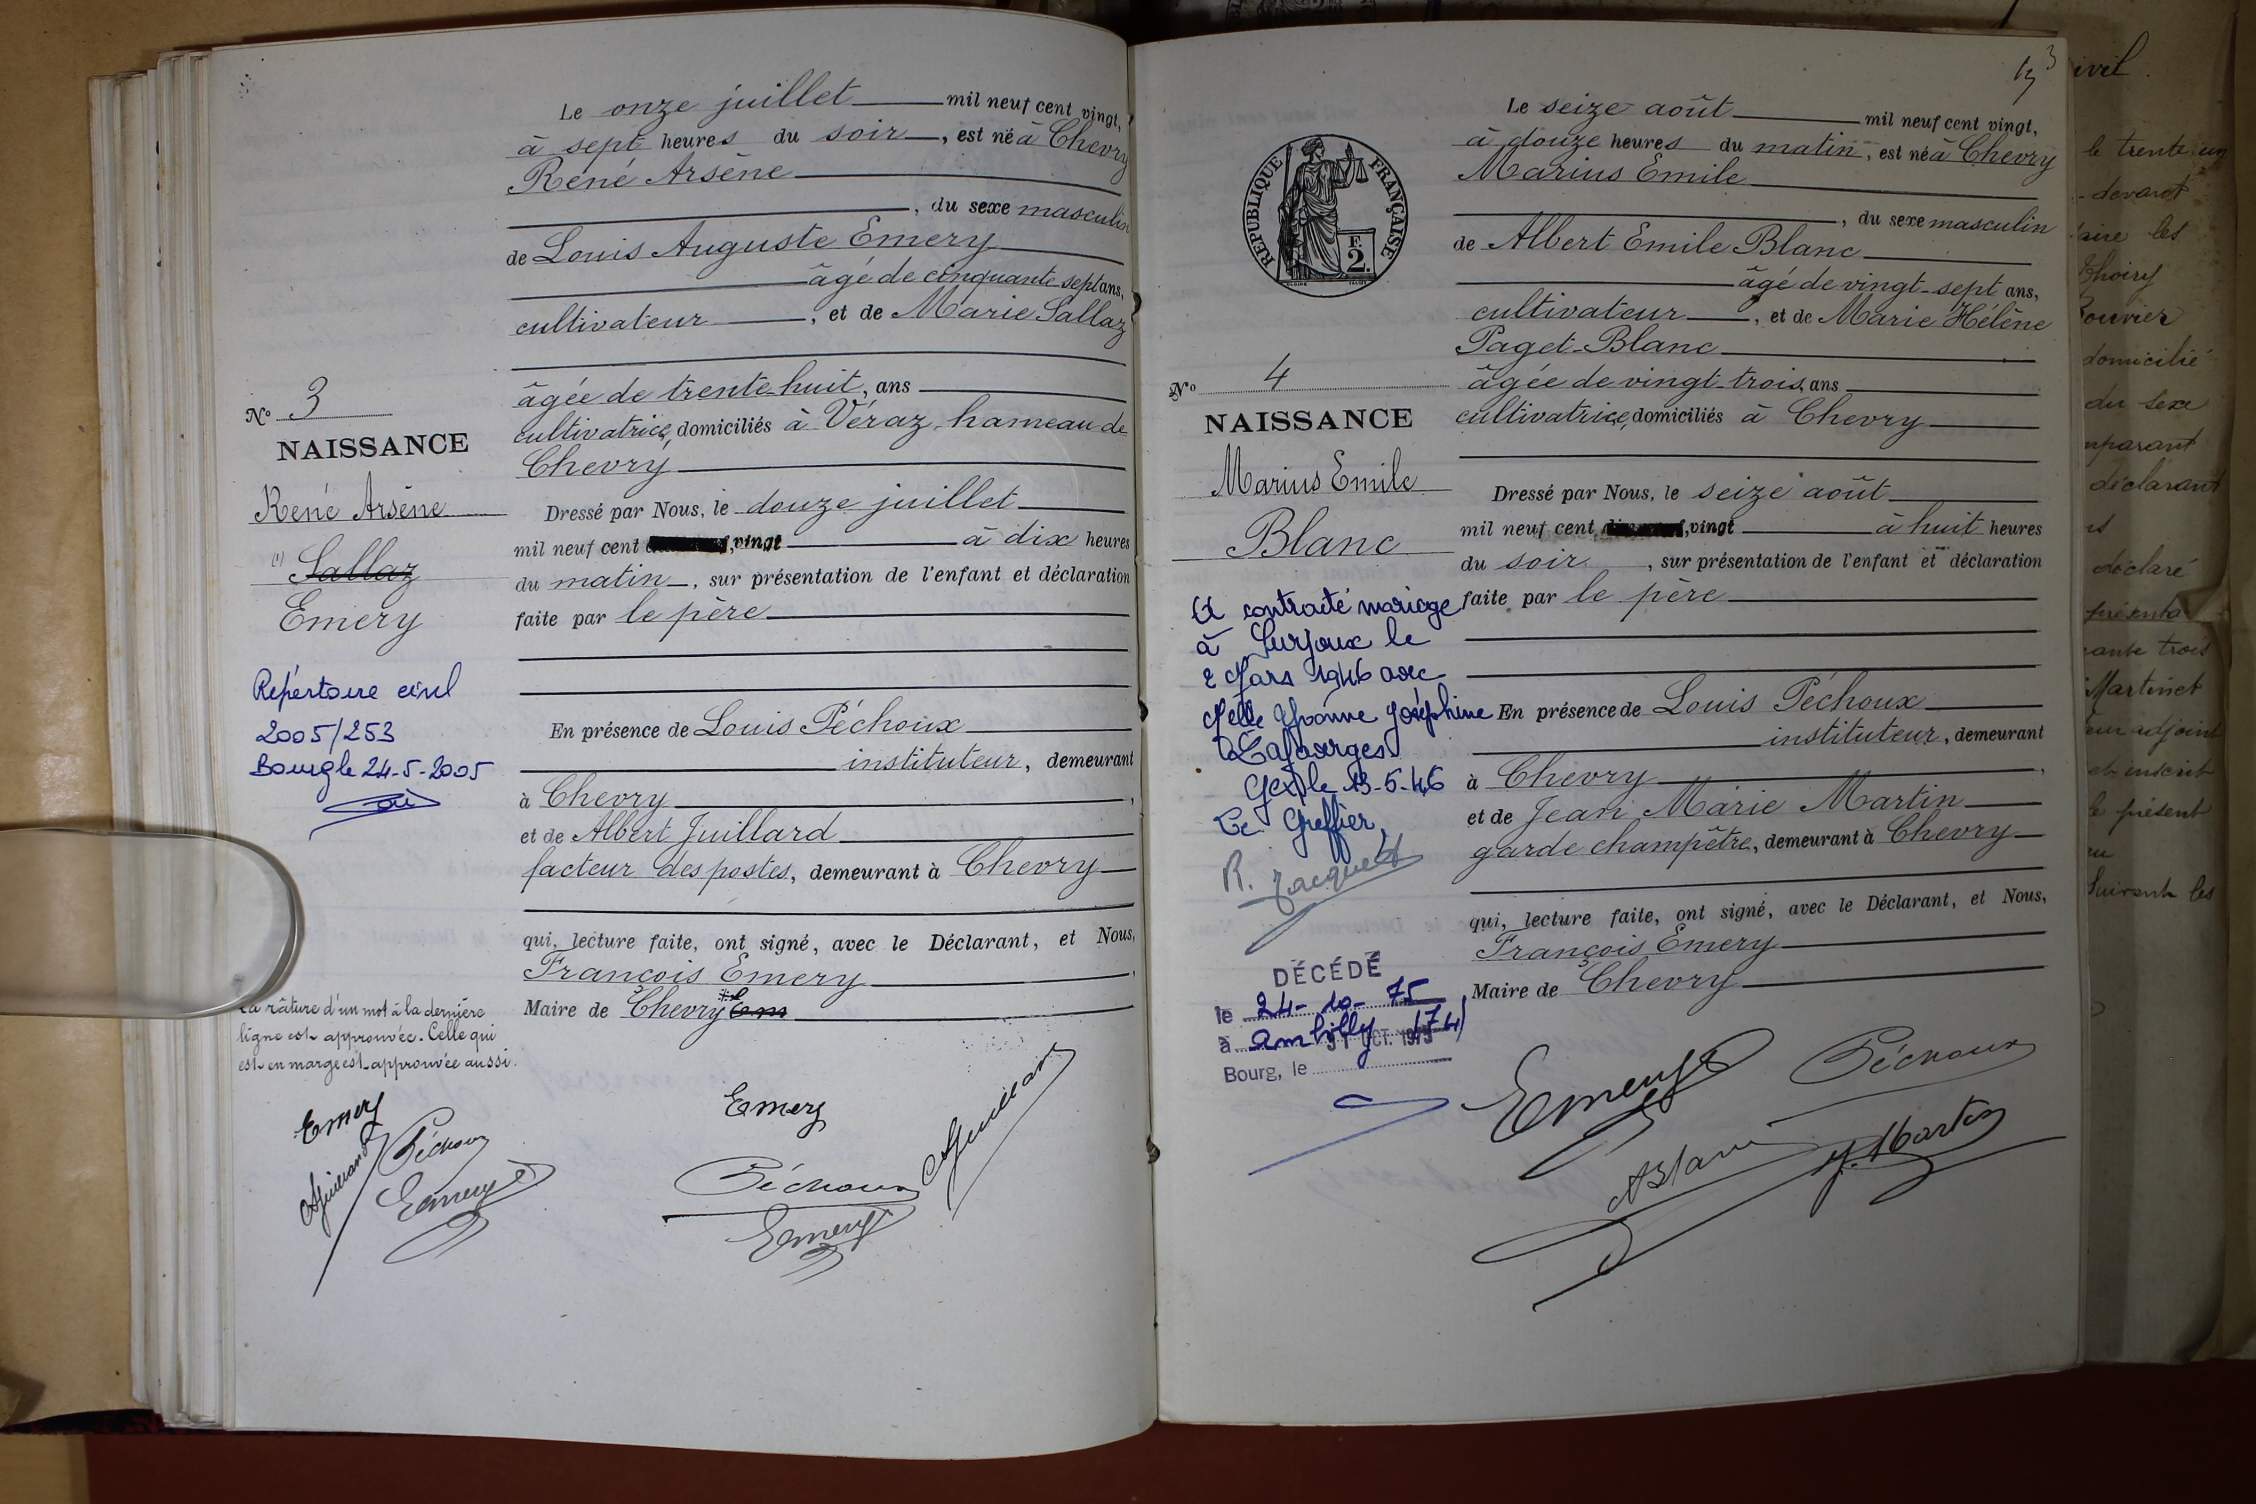 Le onze juillet mil neuf cent vingt,
à sept heures du soir, est né à Chevry
René Arsène
, du sexe masculin
de Louis Auguste Emery
âgé de cinquante-sept ans,
cultivateur, et de Marie Sallaz
âgée de trente-huit, ans
cultivatrice, domiciliés à Véraz, hameau de
Chevry
Dressé par Nous, le douze juillet
mil neuf cent vingt à dix heures
du matin, sur présentation de l'enfant et déclaration
faite par le père
En présence de Louis Péchoux
instituteur, demeurant
à Chevry,
et de Albert Juillard
facteur des postes, demeurant à Chevry
qui, lecture faite, ont signé, avec le Déclarant, et Nous,
François Emery,
Maire de Chevry
Emery
Péchoux
AJuillard
Emery
No 3
NAISSANCE
René Arsène
(1) Sallaz
Emery
Répertoire civil
2005/253
Bourg le 24-5-2005
La râture d'un mot à la dernière
ligne est approuvée. Celle qui
est en marge est approuvée aussi.
Emery
AJuillard
Péchoux
Emery
3
Le seize août mil neuf cent vingt,
à douze heures du matin, est né à Chevry
Marius Emile
, du sexe masculin
de Albert Emile Blanc
âgé de vingt-sept ans,
cultivateur, et de Marie Hélène
Paget-Blanc
âgée de vingt-trois, ans
cultivatrice, domiciliés à Chevry
Dressé par Nous, le seize août
mil neuf cent, vingt à huit heures
du soir, sur présentation de l'enfant et déclaration
faite par le père
En présence de Louis Péchoux
instituteur, demeurant
à Chevry,
et de Jean Marie Martin
garde champêtre, demeurant à Chevry
qui, lecture faite, ont signé, avec le Déclarant, et Nous,
François Emery
Maire de Chevry
Emery
Péchoux
ABlanc
J. Martin
REPUBLIQUE FRANÇAISE
F.
2.
No 4
NAISSANCE
Marius Emile
Blanc
A contracté mariage
à Surjoux le
2 Mars 1946 avec
Melle Yvonne Joséphine
Gex, le 13-5-46
Le Greffier,
R. Jacquet
DÉCÉDÉ
le 24-10-75
à Ambilly (74)
31 OCT. 1975
Bourg, le
ivil.
le trente un
devant
aire les
Thoiry
Bouvier
domicilié
du sexe
mparant
déclarant
déclaré
présenta
rante trois
Martinet
eur adjoint
et inscrit
le présent
suivant les